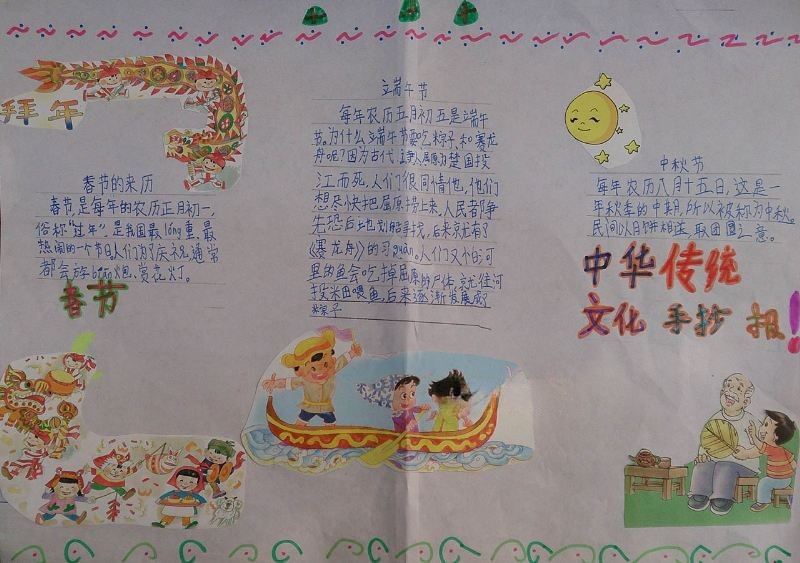 拜年
春节的来历
春节,是每年的农历正月初一,
俗称"过年",是我国最lóng重、最
热闹的一个节日人们为了庆祝,通常
都会放biān炮、赏花灯。
春节
立端午节
每年农历五月初五是立端午
节。为什么立端午节要吃粽子和赛龙
舟呢?因为古代
江而死,人们很同情他,他们
想尽快把屈原捞上来,人民都争
先恐后地划船寻找,后来就有了
《赛龙舟》的习guàn。人们又怕河
里的鱼会吃掉屈原的尸体,就往河
投米团喂鱼,后来逐渐发展成了
粽子
中秋节
每年农历八月十五日,这是一
年秋季的中期,所以被称为中秋。
民间以月饼相送,取团圆之意。
中华传统
文化手抄报!